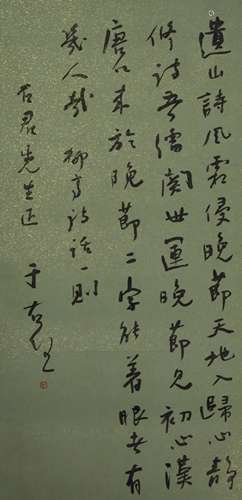 遺山詩風霜侵晚節天地入歸心靜
修詩吾儒關世運晚節見初心漢
唐以來於晚節二字能著眼者有
幾人哉 柳亭詩話一則
古君先生正
于右任